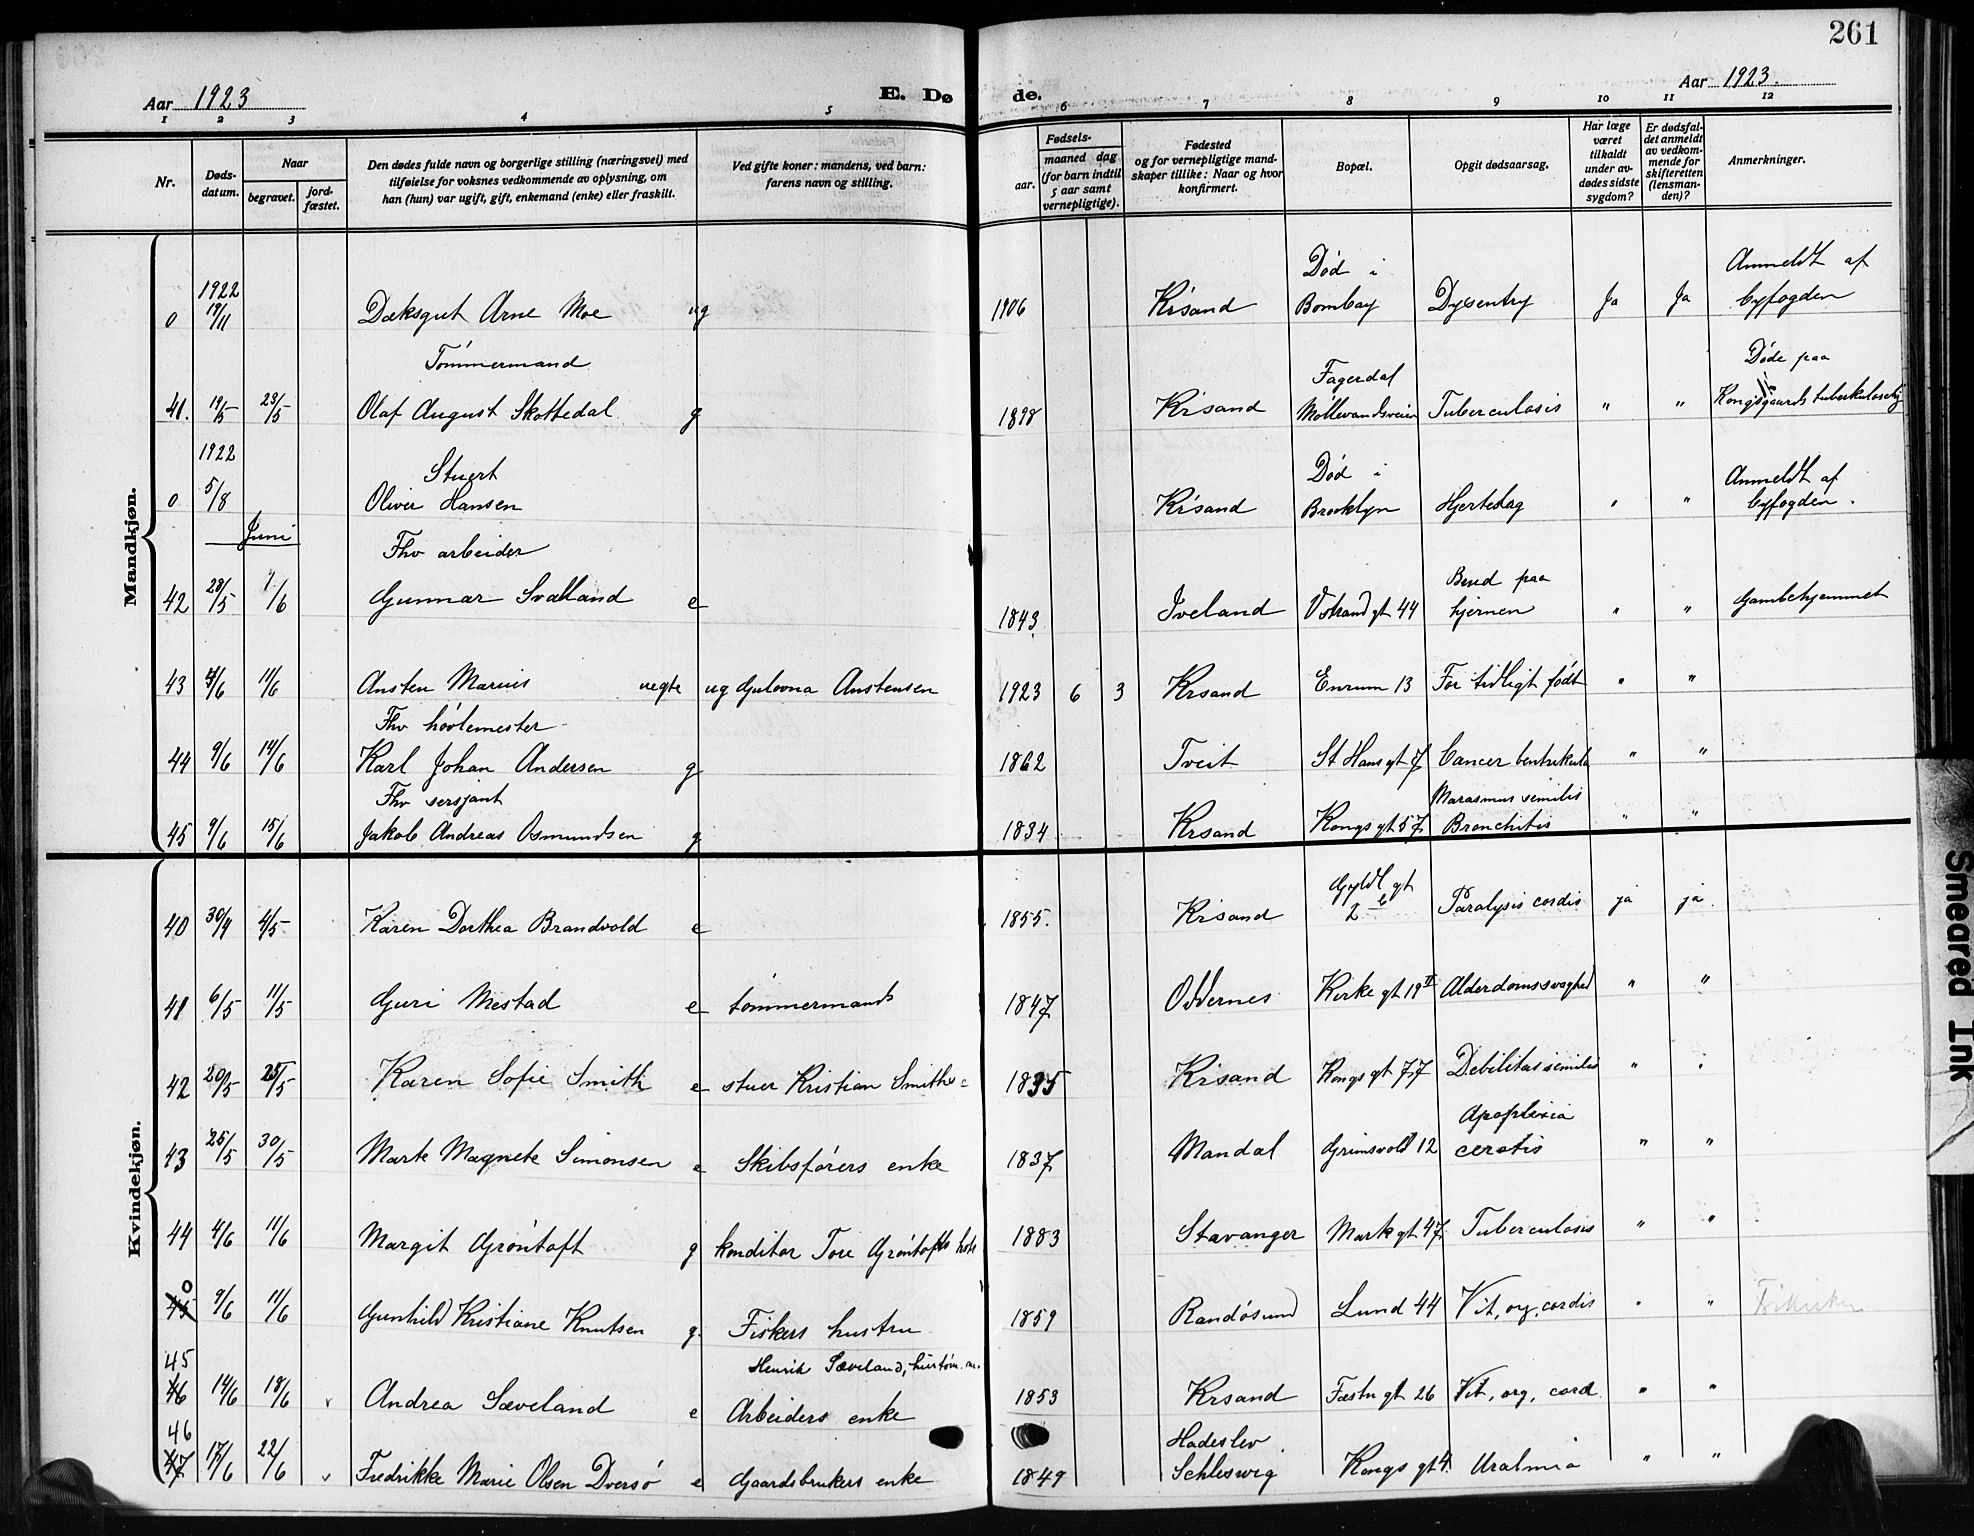 261
Aar 1923
E. Dø de.
Aar 1923.
1 2 3 4 5 6 7 8 9 10 11 12
Nr.
Døds-
datum.
Naar
begravet.
jord-
fæstet.
Den dødes fulde navn og borgerlige stilling (næringsvei) med
tilføielse for voksnes vedkommende av oplysning, om
han (hun) var ugift, gift, enkemand (enke) eller fraskilt.
Ved gifte koner: mandens, ved barn:
farens navn og stilling.
Fødsels-
aar.
maaned dag
(for barn indtil
5 aar samt
vernepligtige).
Fødested
og for vernepligtige mand-
skaper tillike: Naar og hvor
konfirmert.
Bopæl.
Opgit dødsaarsag.
Har læge
været
tilkaldt
under av-
dødes sidste
sygdom?
Er dødsfal-
det anmeldt
av vedkom-
mende for
skifteretten
(lensman-
den)?
Anmerkninger.
Mandkjøn.
1922 Død i Anmeldt af
0 19/11 Dæksgut Arne Moe ug 1906 Krsand Bombay Dysentry Ja Ja byfogden
Tømmermand Fagerdal Døde paa
41. 19/5 23/5 Olaf August Skottedal g 1898 Krsand Møllevandsveien Tuberculosis " " Kongsgaards tuberkulosehj
1922 Stuert Død i Anmeldt af
0 5/8 Oliver Hansen Krsand Brooklyn Hjerteslag " " byfogden.
Juni
Fhv arbeider Brud paa
42 28/5 1/6 Gunnar Svaland e 1843 Iveland V Strand gt 44 hjernen " " Gamlehjemmet
43 4/6 11/6 Ansten Marius uegte ug Gulovna Austensen 1923 6 3 Krsand Enrum 13 For tidligt født " "
Fhv høvlemester
44 9/6 14/6 Karl Johan Andersen g 1862 Tveit St Hans gt 7 Cancer ventrikula " "
Fhv sersjant Marasmus senilis
45 9/6 15/6 Jakob Andreas Osmundsen g 1834 Krsand Kongs gt 57 Bronchitis " "
Kvindekjøn.
Gyldl gt
40 30/4 4/5 Karen Dorthea Brandvold e 1855. Krsand 2 b Paralysis cordis ja ja.
41 6/5 11/5 Guri Mestad e tømmermands 1847 Oddernes Kirke gt 19 II Alderdomssvaghed " "
42 20/5 25/5 Karen Sofie Smith e stuer Kristian Smiths e 1835 Krsand Kongs gt 77 Debilitas senilis " "
Apoplexia
43 25/5 30/5 Marte Magnete Simonsen e Skibsførers enke 1837 Mandal Grimsvold 12 cerotis " "
44 4/6 11/6 Margit Grøntoft g konditor Tore Grøntofts hstr 1883 Stavanger Mark gt 47 Tuberculosis " "
0
45 9/6 11/6 Gunhild Kristiane Knutsen g. Fiskers hustru 1859 Randøsund Lund 44 Vit, org, cordis " "
45 Henrik Sæveland, hustøm. m.
46 14/6 18/6 Andrea Sæveland e Arbeiders enke 1853 Krsand Fæstn gt 26 Vit, org, cord. " "
46 Hadeslev
47 17/6 22/6 Fredrikke Marie Olsen Dversø e Gaardsbrukers enke 1849 Schleswig Kongs gt 4. Uralmia " "
Smeared Ink